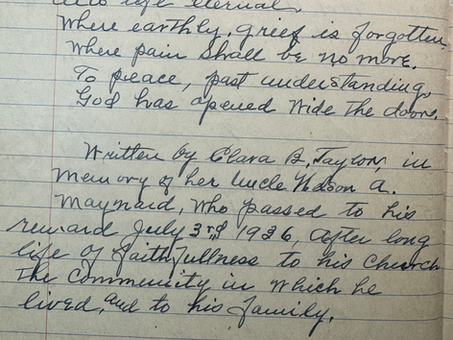 into life eternal.
Where earthly, grief is forgotten,
Where pain shall be no more.
To peace, past understanding,
God has opened wide the doors.
Written by Clara B. Taylor, in
memory of her Uncle Nelson A.
Maynard, who passed to his
reward July 3rd, 1926, after long
life of faithfullness to his Church
the Community in which he
lived, and to his family.